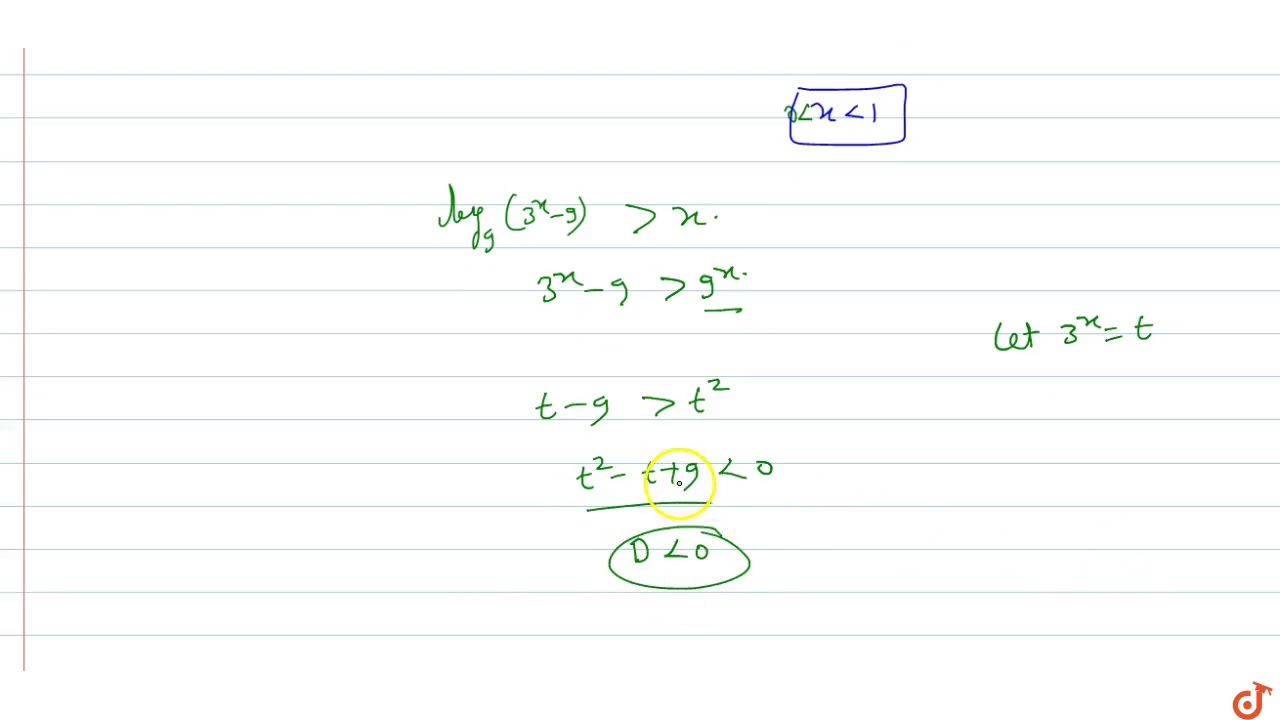 0<x<1
log₉(3ˣ-9) > x.
3ˣ-9 > 9ˣ.
Let 3ˣ = t
t-9 > t²
t²-t+9 < 0
D<0